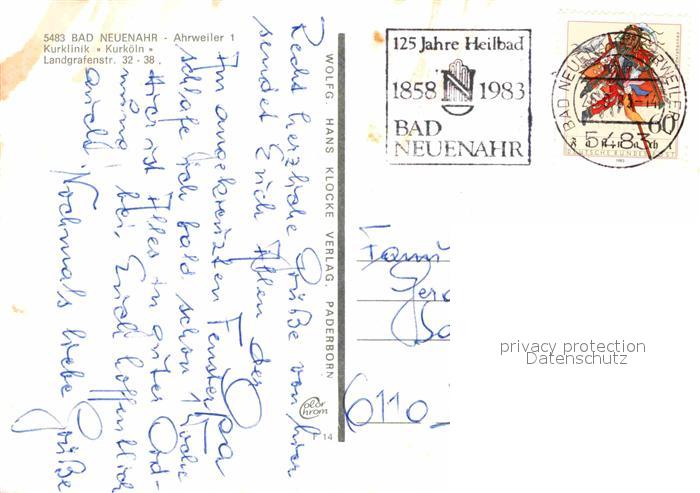 5483 BAD NEUENAHR - Ahrweiler 1
Kurklinik • Kurköln •
Landgrafenstr. 32 - 38
Recht herzliche Grüße von hier
sendet Euch Allen der Opa
Im angekreuzten Fenster
schlafe ich bald schon 1 Woche
Hier ist Alles in guter Ord-
nung bei Euch hoffentlich
auch. Nochmals liebe Grüße
WOLFG. HANS KLOCKE VERLAG, PADERBORN
color
chrom
F 14
125 Jahre Heilbad
1858 1983
BAD
NEUENAHR
BAD NEUENAHR-AHRWEILER
5483
60
DEUTSCHE BUNDESPOST
1983
Fami
Ger
6110
privacy protection
Datenschutz